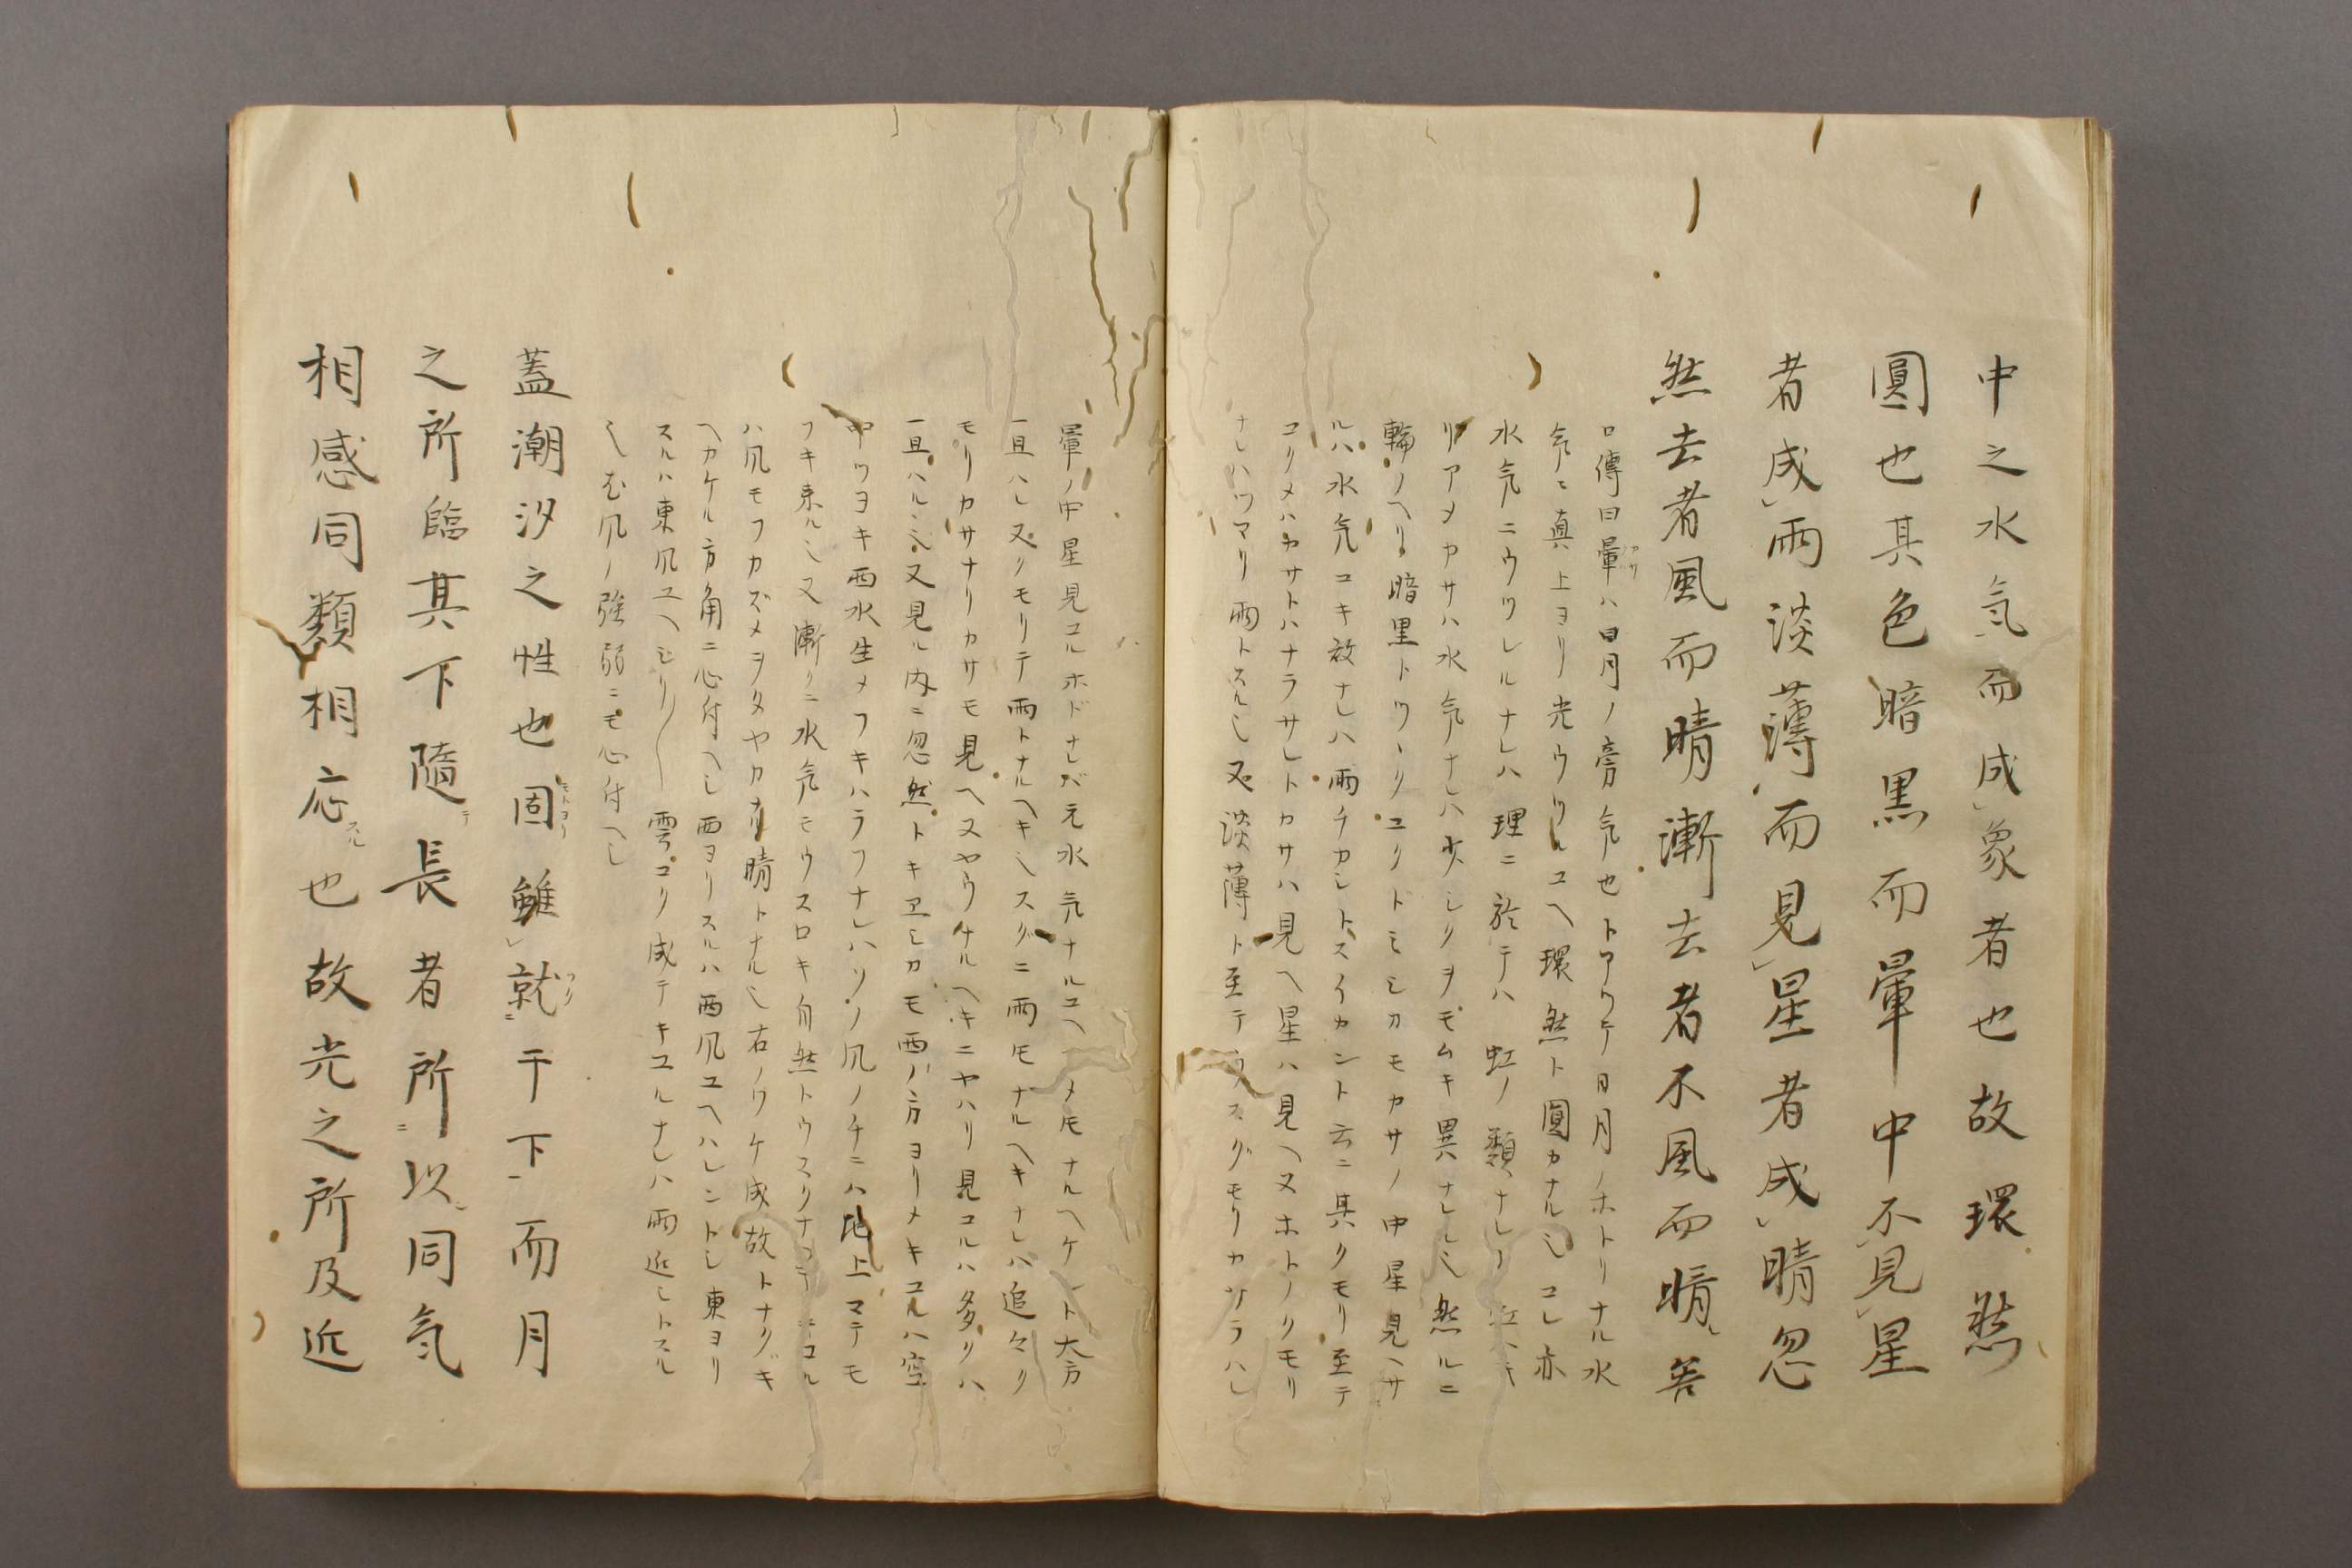 中之水氣而成レ象者也故環然
圓也其色暗黒而暈中不レ見レ星
者成レ雨淡薄而見レ星者成レ晴忽
然去者風而晴漸去者不風而晴
口傳曰暈ハ日月ノ旁気也トアツテ日月ノホトリナル水
気ニ真上ヨリ光ウツルユヘ環然ト圓カナル也コレ亦
水気ニウツレルナレハ理ニ於テハ虹ノ類ナレ
リアメカサハ水気ナレハ少シクヲモムキ異ハナレ𪜈然ルニ
輪ノヘリ暗黒ト
ルハ水気コキ故ナレハ雨チカシトスイカント云ニ其クモリ至テ
コクメハカサトハナラサレトカサハ見ヘ星ハ見ヘヌホトノクモリ
ナレハツマリ雨トスル也又淡薄ト至テウスグモリカ
暈ノ中星見ユルホドナレバ元水気ナルユヘアメ𪜈ナルヘケレト大方
一旦ハレ又クモリテ雨トナルヘキ也スグニ雨𪜈ナルヘキナレハ追々ク
モリカサナリカサモ見ヘヌヤウナルヘキニヤハリ見ユルハ多クハ
一旦ハル也又見ル内ニ忽然トキエシカモ西ノ方ヨリメキユルハ空
中ツヨキ西水生メフキハラフナレハソノ風ノチニハ地上マテモ
フキ来ル也又漸クニ水気モウスロキ自然トウスクナツテキユル
ハ風モフカズメヲタヤカナリ晴トナル也右ノワケ成故トナクキ
ヘカケル方角ニ心付ヘシ西ヨリスルハ西風ユヘハレントシ東ヨリ
スルハ東風ユヘシリ〳〵雲コク成テキユルナレハ雨近シトスル
也尤風ノ強弱ニモ心付ヘシ
蓋潮汐之性也固雖レ就二于下一而月
之所臨其下隨テ長者所二以レ同氣
相感同類相応スル也故光之所及近